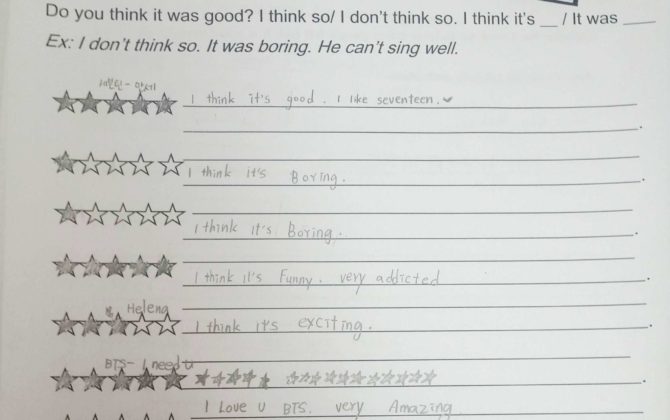 Do you think it was good? I think so/ I don't think so. I think it's __ / It was ____
Ex: I don't think so. It was boring. He can't sing well.
세븐틴 - 만세
I think it's good. I like seventeen.
I think it's Boring.
I think it's Boring.
I think it's Funny. very addicted
Heleng
I think it's exciting.
BTS- I need u
I Love U BTS. very Amazing